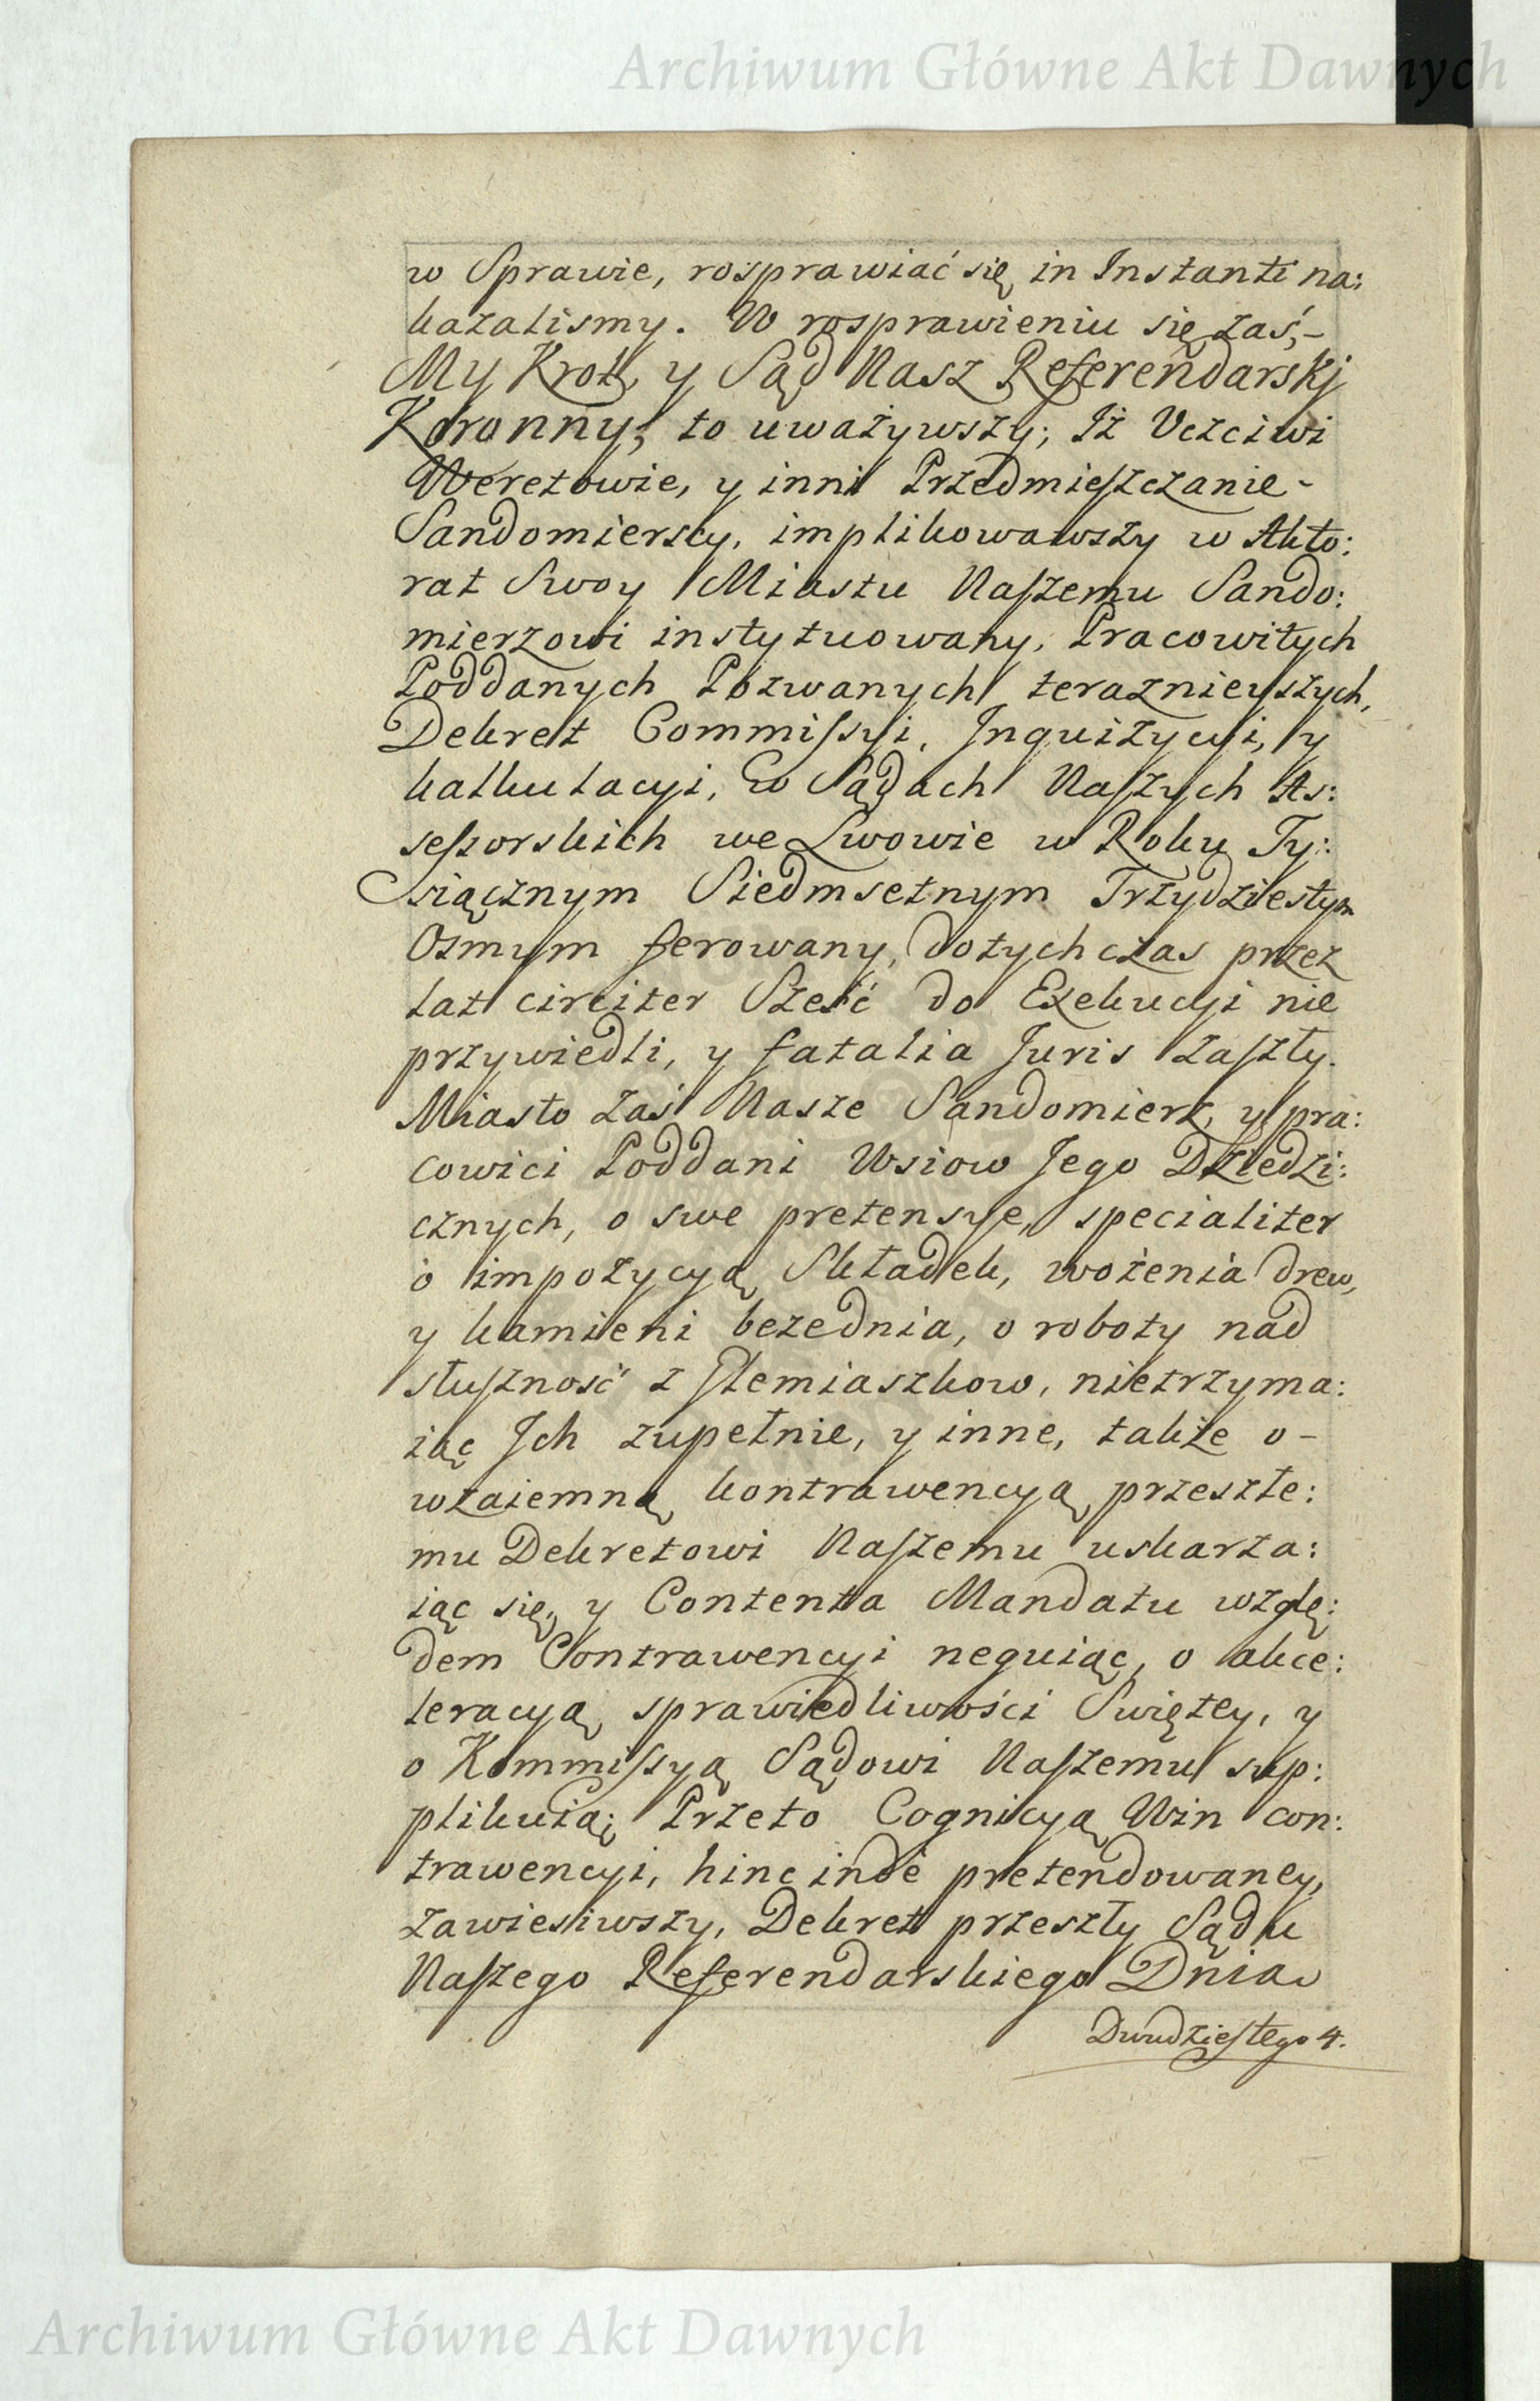 Archiwum Główne Akt Dawnych
w Sprawie, rosprawiać się in Instanti na:
kazalismy. W rosprawieniu się zaś,-
My Krol, y Sąd Nasz Referendarskj
Koronny; to uważywszy; Iż Vczciwi
Weretowie, y inni Przedmieszczanie-
Sandomierscy, implikowawszy w Akto:
rat Swoy Miastu Naszemu Sando:
mierzowi instytuowany, Pracowitych
Poddanych Pozwanych teraznieyszych,
Dekret Commissyi, Inquizycyi, y
kalkulacyi, w Sądach Naszych As:
sessorskich we Lwowie w Roku Ty:
siącznym Siedmsetnym Trzydziestym
Osmym ferowany, dotychczas przez
lat circiter Sześć do Exekucyi nie
przywiedli, y fatalia Juris zaszły.
Miasto zaś Nasze Sandomierz, y pra:
cowici Poddani Wsiow Jego Dziedzi:
cznych, o swe pretensye, specialiter
o impozycyą Składek, wożenia drew,
y kamieni bezednia, o roboty nad
słuszność z Slemiaszkow, nietrzyma:
iąc Ich zupełnie, y inne, także o-
wzaiemną kontrawencyą przeszłe:
mu Dekretowi Naszemu uskarza:
iąc się, y Contenta Mandatu wzglę:
dem Contrawencyi neguiąc, o akce:
leracyą sprawiedliwości Swiętey, y
o Kommissyą Sądowi Naszemu sup:
plikuią; Przeto Cognicyą Win con:
trawencyi, hinc inde pretendowaney,
zawiesiwszy, Dekret przeszły Sądu
Naszego Referendarskiego Dnia
Dwudziestego 4.
Archiwum Główne Akt Dawnych